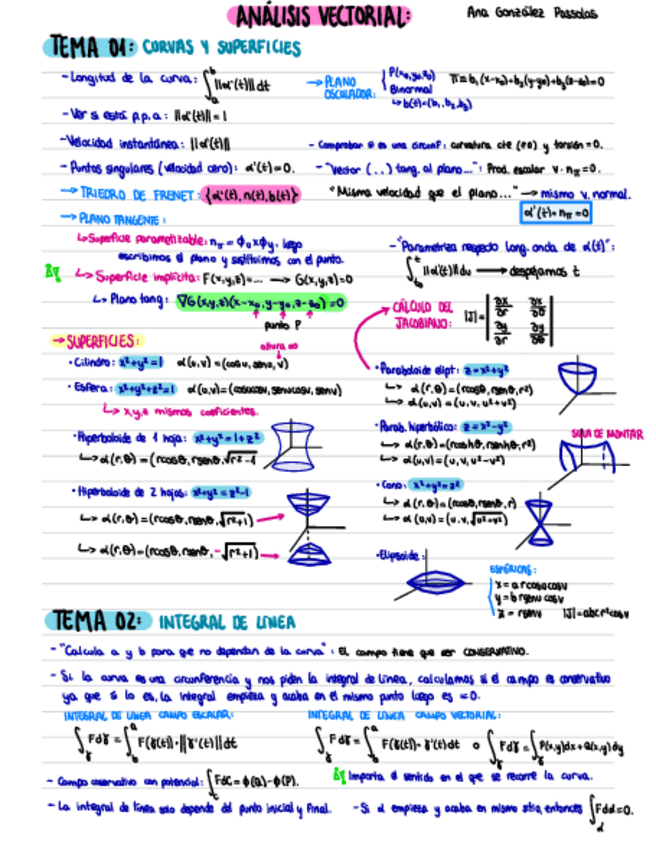 ANÁLISIS VECTORIAL:
Ana González Passolas
TEMA 01: CURVAS Y SUPERFICIES
- Longitud de la curva: ∫_a^b ||α'(t)|| dt
→ PLANO OSCULADOR:
P(x₀,y₀,z₀)
Binormal
↳ b(t)=(b₁,b₂,b₃)
π≡b₁(x-x₀)+b₂(y-y₀)+b₃(z-z₀)=0
- Ver si está p.p.a: ||α'(t)||=1
- Velocidad instantánea: ||α'(t)||
- Comprobar si es una circunf: curvatura cte (≠0) y torsión = 0.
- Puntos singulares (velocidad cero): α'(t)=0.
- "Vector (..) tang. al plano...": Prod. escalar v·nπ=0.
→ TRIEDRO DE FRENET: {α'(t), n(t), b(t)}
"Misma velocidad que el plano..." → mismo v. normal.
α'(t)·nπ=0
→ PLANO TANGENTE:
↳ Superficie parametrizable: nπ=ϕᵤxϕᵥ, luego
escribimos el plano y sustituimos con el punto.
- "Parametriza respecto long. onda de α(t)":
∫_t₀^t ||α'(t)|| du → despejamos t
↳ Superficie implícita: F(x,y,z)=... → G(x,y,z)=0
↳ Plano tang: ∇G(x,y,z)(x-x₀, y-y₀, z-z₀)=0
punto P
CÁLCULO DEL JACOBIANO: |J|= | ∂x/∂r ∂x/∂θ ; ∂y/∂r ∂y/∂θ |
→ SUPERFICIES:
altura
• Cilindro: x²+y²=1 α(u,v)=(cosu, senu, v)
• Paraboloide elipt: z=x²+y²
↳ α(r,θ)=(rcosθ, rsenθ, r²)
↳ α(u,v)=(u,v,u²+v²)
• Esfera: x²+y²+z²=1 α(u,v)=(cosucosv, senucosv, senv)
↳ x,y,z mismos coeficientes.
• Parab. hiperbólico: z=x²-y²
SILLA DE MONTAR
↳ α(r,θ)=(rcoshθ, rsenhθ, r²)
↳ α(u,v)=(u,v,u²-v²)
• Hiperboloide de 1 hoja: x²+y²=1+z²
↳ α(r,θ)=(rcosθ, rsenθ, √r²-1
• Cono: x²+y²=z²
↳ α(r,θ)=(rcosθ, rsenθ, r)
↳ α(u,v)=(u,v,√u²+v²)
• Hiperboloide de 2 hojas: x²+y²=z²-1
↳ α(r,θ)=(rcosθ, rsenθ, √r²+1)
↳ α(r,θ)=(rcosθ, rsenθ, -√r²+1)
• Elipsoide:
ESFÉRICAS:
x=arcosucosv
y=brsenucosv
z=rsenv |J|=abcr²cosv
TEMA 02: INTEGRAL DE LINEA
- "Calcula a y b para que no dependan de la curva": EL campo tiene que ser CONSERVATIVO.
- Si la curva es una circunferencia y nos piden la integral de línea, calculamos si el campo es conservativo
ya que si lo es, la integral empieza y acaba en el mismo punto luego es =0.
INTEGRAL DE LINEA CAMPO ESCALAR:
INTEGRAL DE LINEA CAMPO VECTORIAL:
∫_γ Fdγ = ∫_b^a F(γ(t))·||γ'(t)|| dt
∫_γ Fdγ = ∫_b^a F(γ(t))·γ'(t)dt o ∫_γ Fdγ = ∫_γ P(x,y)dx+Q(x,y)dy
- Campo conservativo con potencial: ∫_C Fdc = ϕ(Q)-ϕ(P).
Importa el sentido en el que se recorre la curva.
- La integral de línea solo depende del punto inicial y final.
- Si α empieza y acaba en mismo sitio, entonces ∫_α Fdα=0.